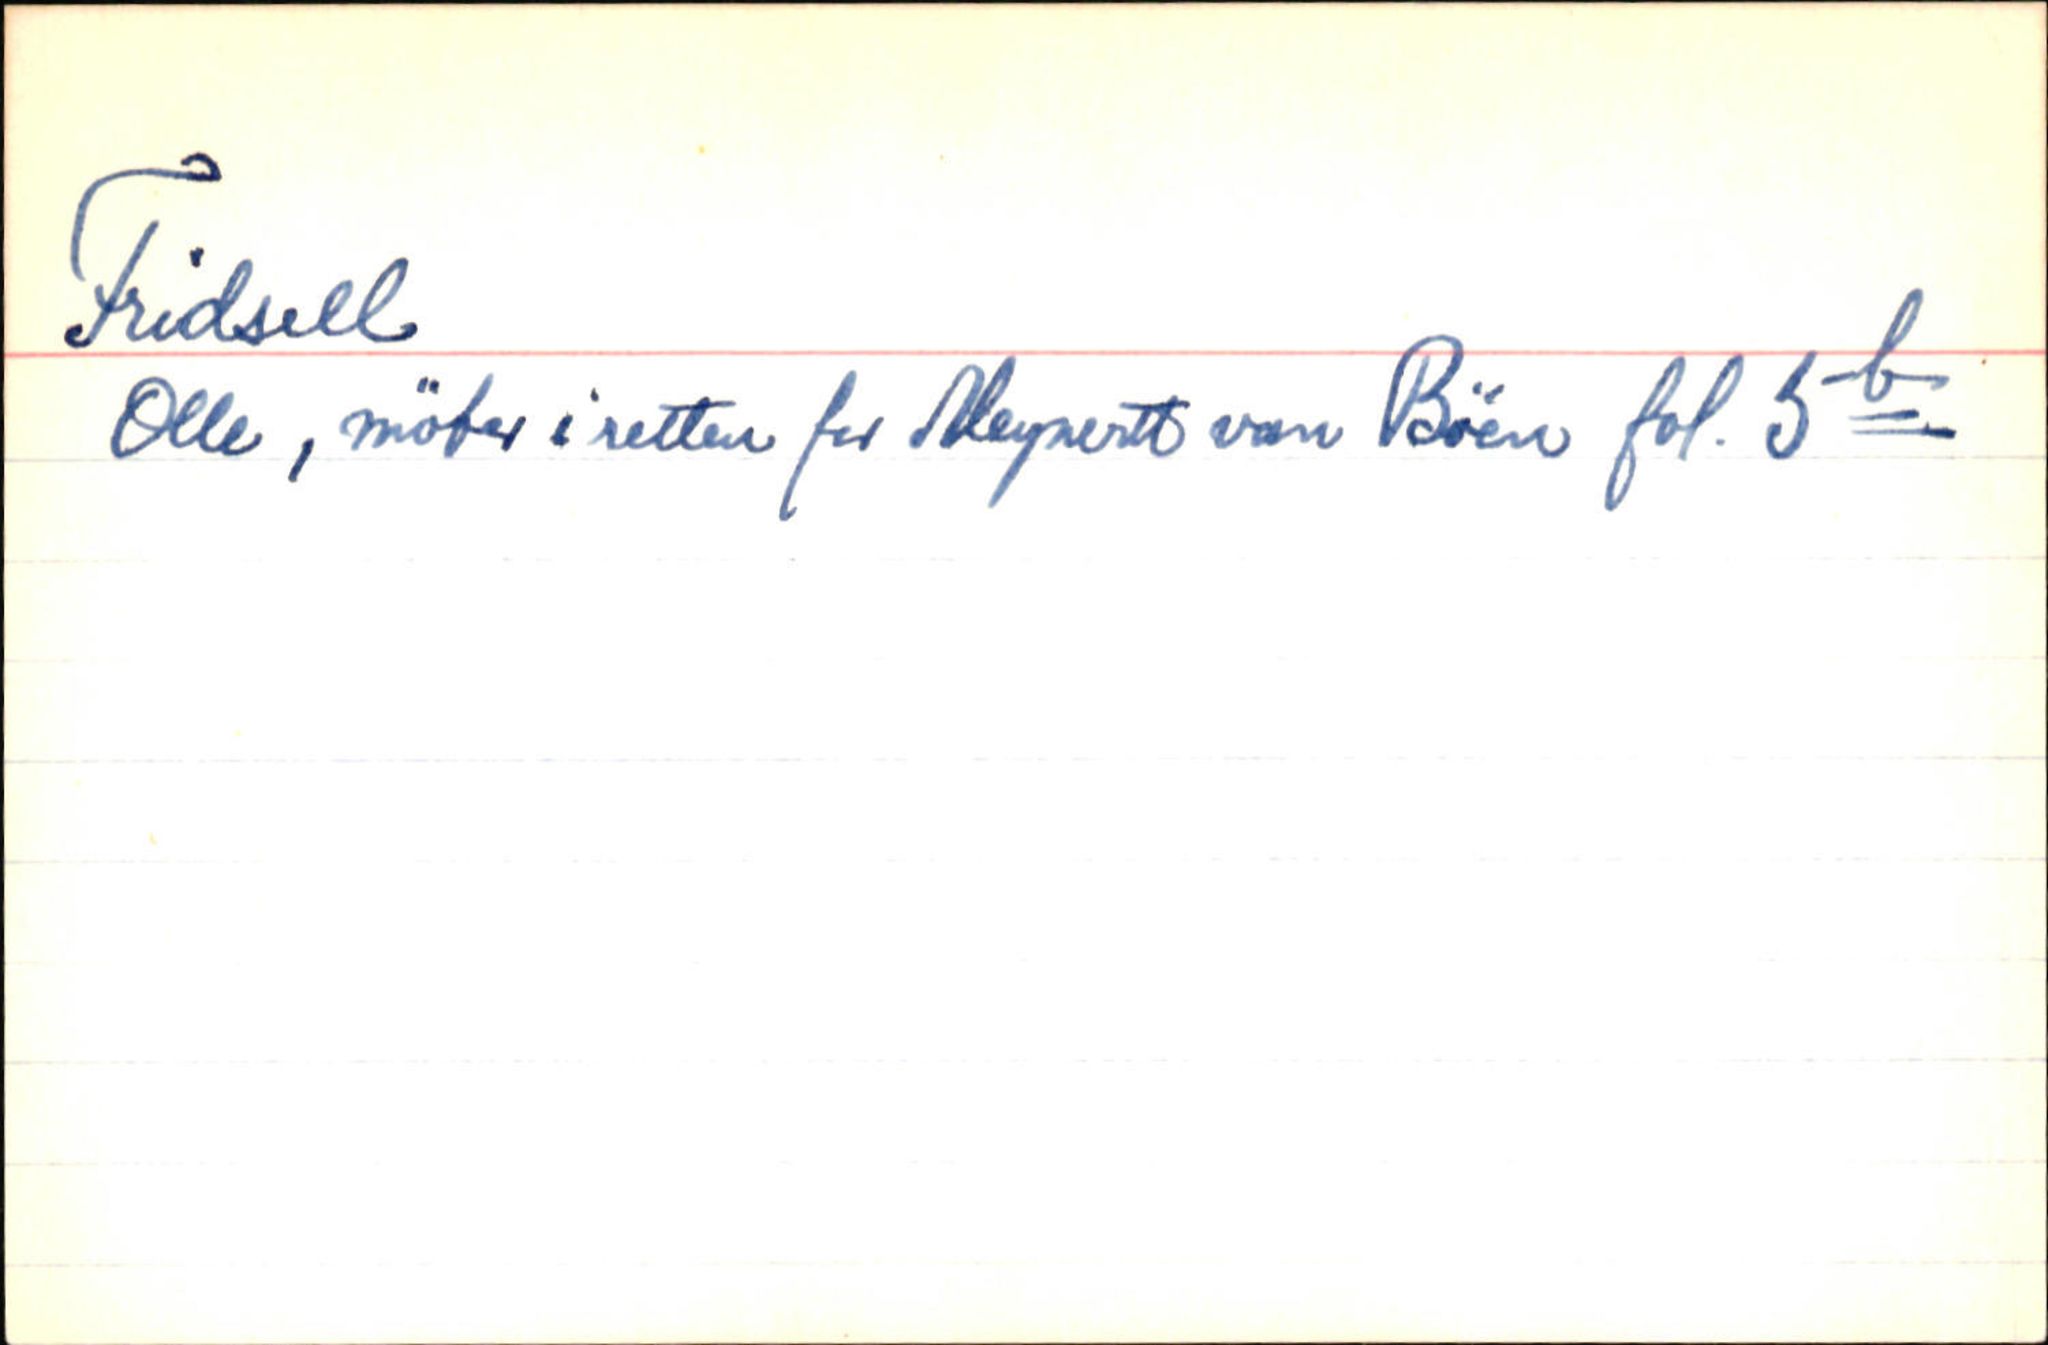 Fridsell
Olle, möter i retten for Meynertt van Böen fol. 5 b